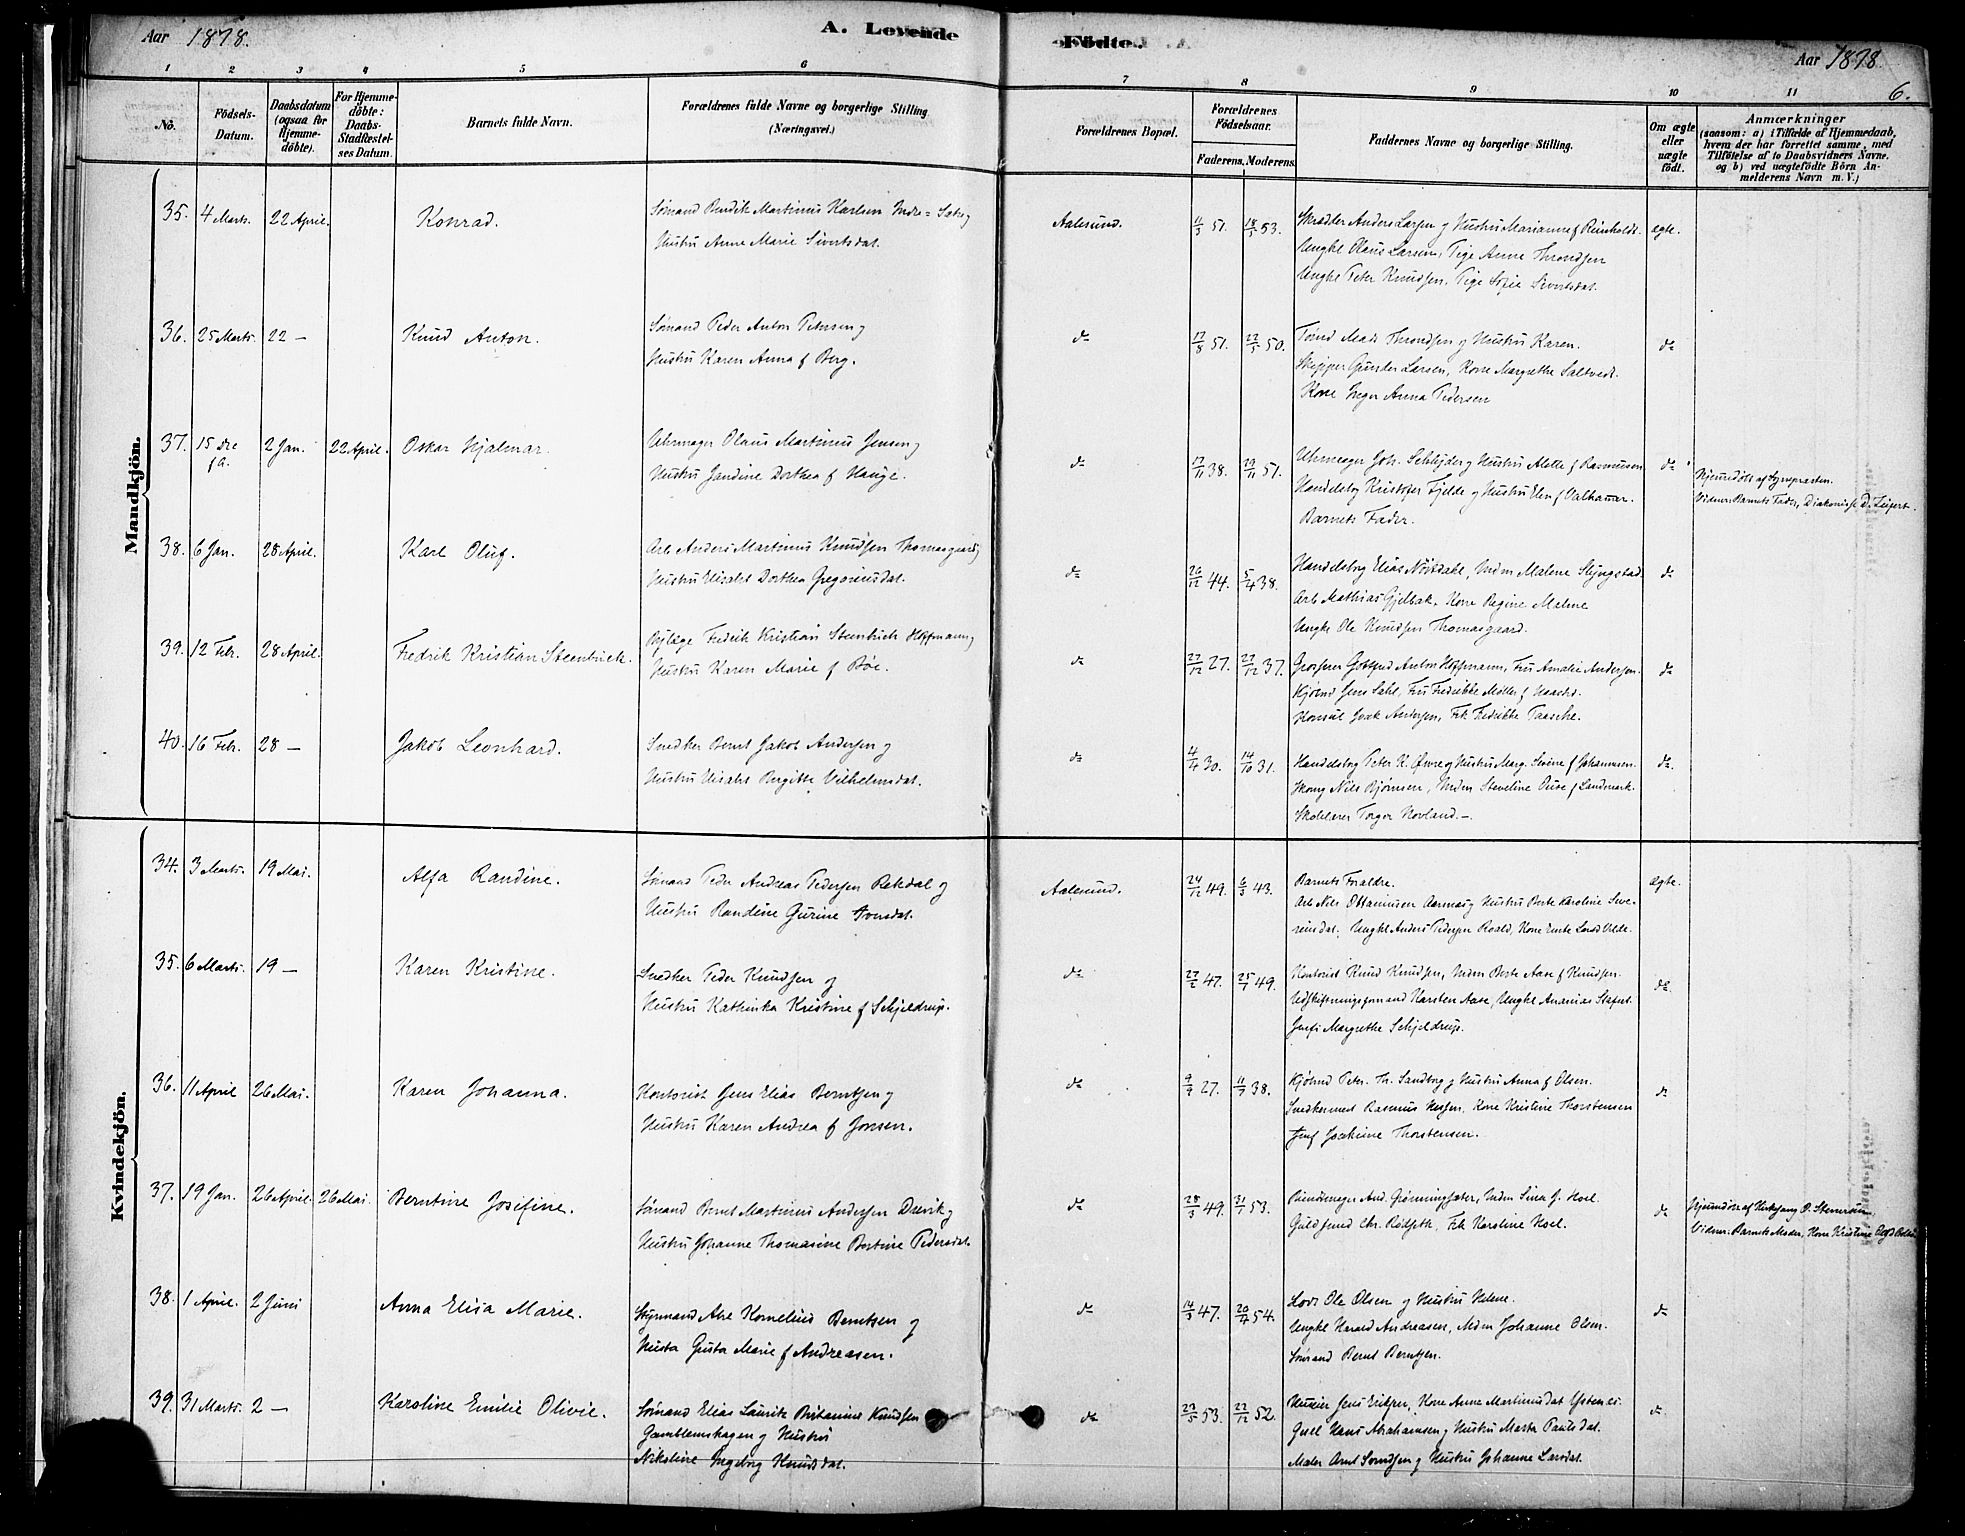 Aar 1878.
A. Levende
Födte.
Aar 1878.
6.
1 2 3 4 5 6 7 8 9 10 11
No.
Födsels-Datum.
Daabsdatum (ogsaa for Hjemme-döbte).
For Hjemme-döbte: Daabs-Stadfæstel-ses Datum.
Barnets fulde Navn.
Forældrenes fulde Navne og borgerlige Stilling (Næringsvei.)
Forældrenes Bopæl.
Forældrenes Födselsaar.
Faderens. Moderens.
Faddernes Navne og borgerlige Stilling.
Om ægte eller uægte födt.
Anmærkninger
(saasom: a) i Tilfælde af Hjemmedaab, hvem der har forrettet samme, med Tilföielse af to Daabsvidners Navne. og b) ved uægtefödte Börn An-melderens Navn m. V.)
Mandkjön.
35. 4 Marts. 22 April. Konrad. Sömand Bendik Martinus Karlsen Indre-Sætre og Aalesund. 11/3 51. 18/5 53. Skrædder Anders Larsen og Hustru Marianne f Reinholdt. ægte.
Hustru Anne Marie Sivertsdat. Ungkl Olaus Larsen, Pige Anne Throndsen
Ungkl Peter Knudsen, Pige Sofie Sivertsdat.
36. 25 Marts. 22 — Knud Anton. Sömand Peder Anton Petersen og do 17/8 51. 22/5 50. Mads Throndsen og Hustru Karen. do
Hustru Karen Anna f Berg. Skipper Gunder Larsen, Kone Margrethe Saltvedt.
Kone Inger Anna Pedersen
37. 15 Dec f.A. 2 Jan. 22 April. Oskar Hjalmar. Uhrmager Olaus Martinus Jensen og do 17/11 38. 29/11 51. Uhrmager Joh. Schlyder og Hustru Alette f Rasmussen do
Hustru Jandine Dorthea f Hauge. Handelsbg Kristofer Fjelde og Hustru Elen f Valhammer.
Barnets Fader.
Hjemmedöbt af Sognepresten.
Vidner: Barnets Fader, Diakonisse D. Seifert.
38. 6 Jan. 28 April. Karl Oluf. Arb Anders Martinus Knudsen Thomasgaard og do 26/12 44. 5/4 38. Handelsbg Elias Nörvdahl, Mdm Malene Slyngstad do
Hustru Elisabet Dorthea Gregoriusdat. Arb Mathias Gjelbak, Kone Regine Malene
Ungk Ole Knudsen Thomasgaard.
39. 12 Febr. 28 April. Fredrik Kristian Steenbuch. Bylæge Fredrik Kristian Steenbuch Hoffmann og do 27/12 27. 27/12 37. Grosserer Gottfred Anton Hoffmann, Fru Amalie Andersen. do
Hustru Karen Marie f Böe. Kjöbmd Jens Dahl, Fru Fredrikke Møller f
Konsul Isak Andersen, Frk Fredrikke Taasche.
40. 16 Febr. 28 — Jakob Leonhard. Snedker Bernt Jakob Andersen og do 4/4 30. 14/10 31. Handelsbg Peter K. Øwre og Hustru Marg. Sivine f Johannesen. do.
Hustru Elisabt Birgitte Vilhelmsdat. Skomg Nils Bjørnsen, Mdm Steveline Owre f Landmark.
Skolelærer Torger Hovland.—
Kvindekjön.
34. 3 Marts. 19 Mai. Alfa Randine. Sömand Peder Andreas Pedersen Rekdal og Aalesund. 24/12 49. 6/3 43. Barnets Forældre. ægte.
Hustru Randine Gurine Iversdat. Arb Nils Ottaniusen Aarnæs og Hustru Berte Karoline Seve-
rinsdat. Ungkl Anders Pedersen Roald, Kone
35. 6 Marts. 19 — Karen Kristine. Snedker Peder Knudsen og do 27/2 47. 25/7 49. Kontorist Knud Knudsen, Mdm Berte Aase f Knudsen. do.
Hustru Kathinka Kristine f Schjeldrup. Udskiftningsformand Karsten Aase, Ungkl Ananias
Jmfr Margrethe Schjeldrup.
36. 11 April 26 Mai. Karen Johanna. Kontorist Jens Elias Berntsen og do 9/9 27. 11/7 38. Kjöbmd Peter Th. Sandbrg og Hustru Anna f Olsen. do
Hustru Karen Andrea f Jonsen. Snedkermest Rasmus Nessen, Kone Kristine Thorstensen
Jmf Joakime Thorstensen.
37. 19 Jan. 26 April. 26 Mai. Berntine Josefine. Sömand Bernt Martinus Andersen Drevik og do 28/3 49. 31/1 53. Bundtmager And. Grønningsæter, Mdm Sina G. Hoel. do
Hustru Johanne Thomasine Bertine Pedersdat. Guldsmd Chr. Rødseth, Frk Karoline Hoel.
Hjemmedöbt af Kirkesang O. Stenersen.
Vidner: Barnets Moder, Kone Kristine
38. 1 April. 2 Juni Anna Elisa Marie. Styrmand Ole Kornelius Berntsen og do 14/3 47. 20/4 54. Lods Ole Olsen og Hustru Helene. do
Hustru Gusta Marie f Andreasen. Ungkl Harald Andreasen, Mdm Johanne Olsen.
Sömand Bernt Berntsen.
39. 31 Marts. 2 — Karoline Emilie Olivie. Sömand Elias Lauritz Britanius Knudsen do 23/5 53. 22/12 52. Jens Eriksen, Kone Anne Martinusdat Ystenes. do.
Gamblemshagen og Hustru Gusel Hans Abrahamsen og Hustru Marta Paulsdat.
Nikoline Ingeborg Knudsdat. Maler Arnt Svendsen og Hustru Johanne Larsdat.